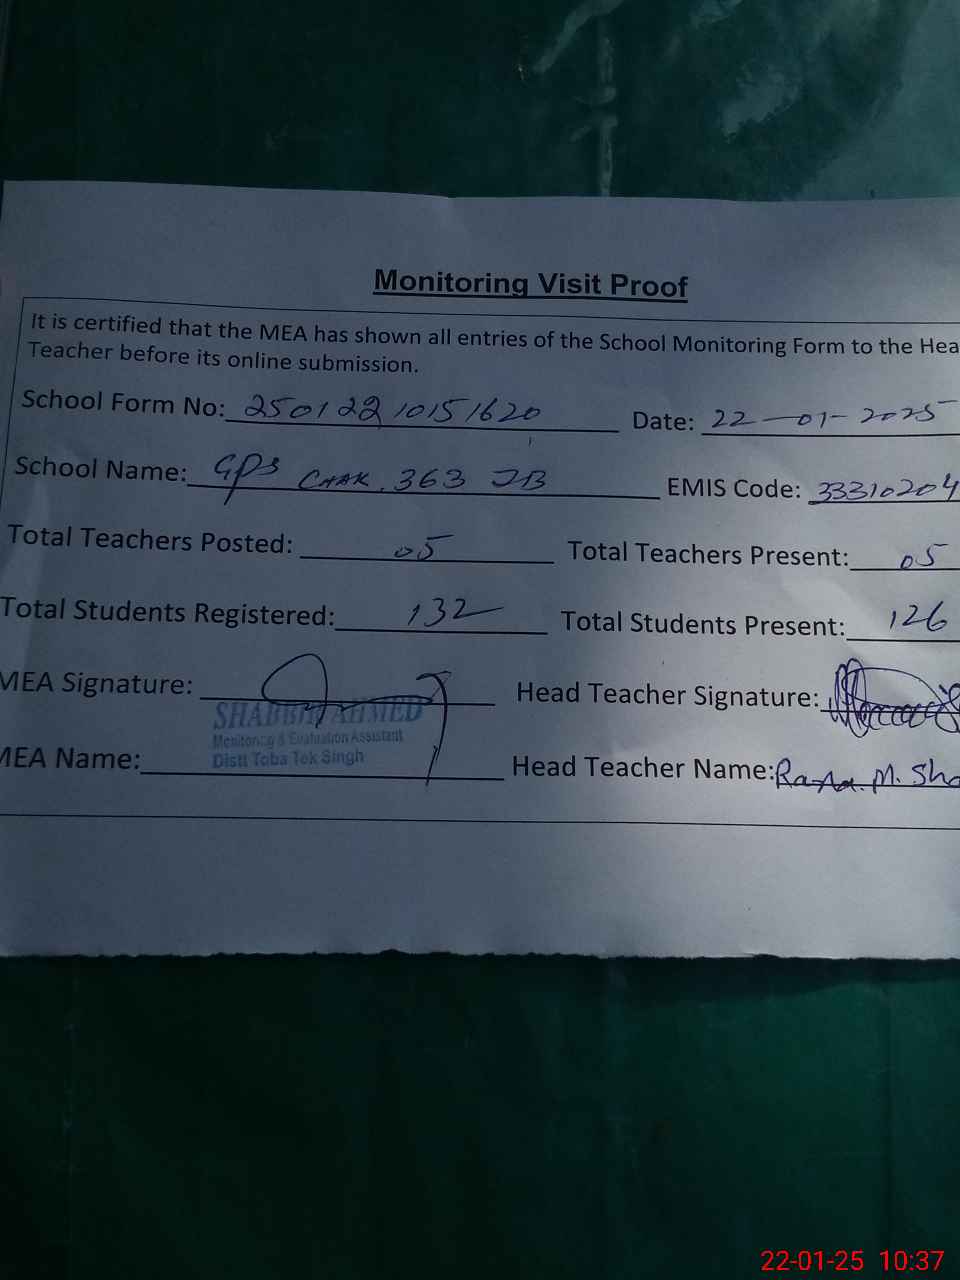 Monitoring Visit Proof
It is certified that the MEA has shown all entries of the School Monitoring Form to the Hea
Teacher before its online submission.
School Form No: 25012210151620 Date: 22-01-2025
School Name: GPS CHAK. 363 JB EMIS Code: 33310204
Total Teachers Posted: 05 Total Teachers Present: 05
Total Students Registered: 132 Total Students Present: 126
MEA Signature: Head Teacher Signature:
SHABBIR AHMED
Monitoring & Evaluation Assistant
Distt Toba Tek Singh
MEA Name: Head Teacher Name: M. Sha
22-01-25 10:37